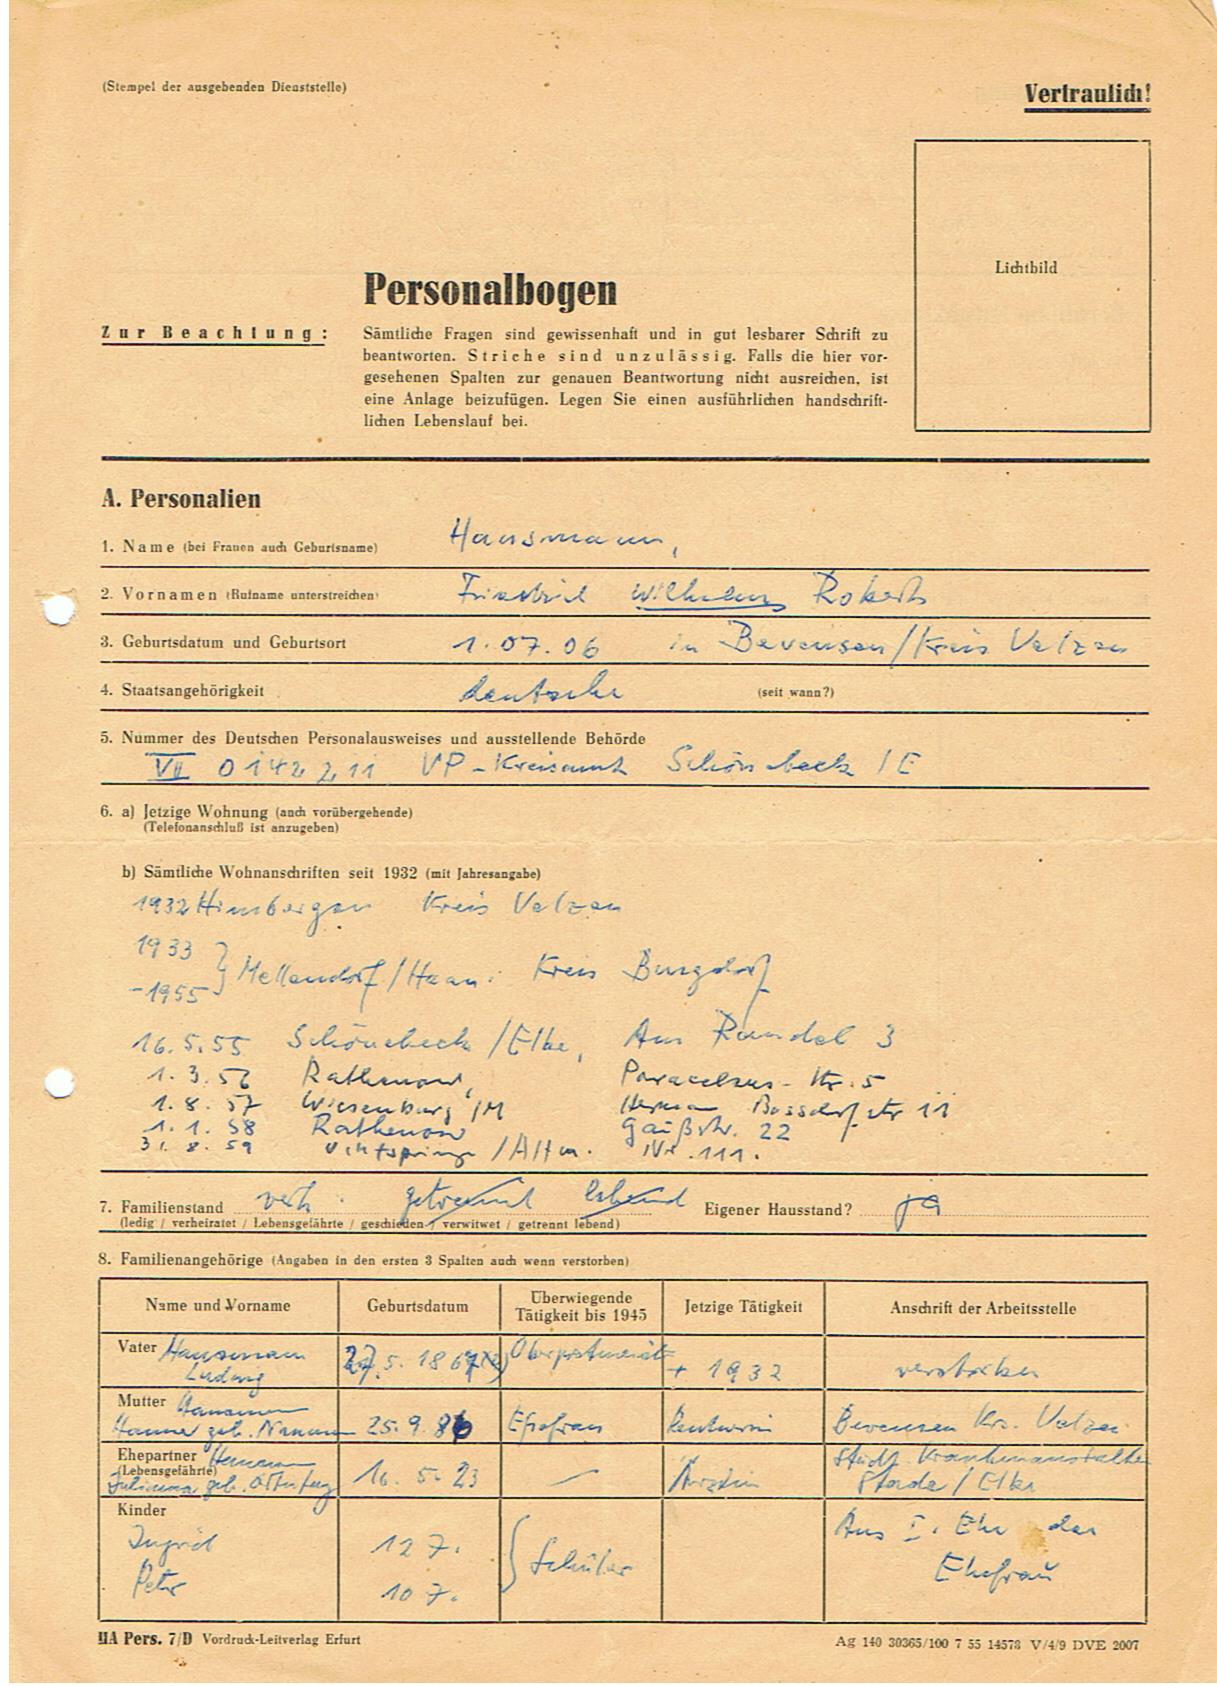 (Stempel der ausgebenden Dienststelle)
Vertraulich!
Lichtbild
Personalbogen
Zur Beachtung:
Sämtliche Fragen sind gewissenhaft und in gut lesbarer Schrift zu
beantworten. Striche sind unzulässig. Falls die hier vor-
gesehenen Spalten zur genauen Beantwortung nicht ausreichen, ist
eine Anlage beizufügen. Legen Sie einen ausführlichen handschrift-
lichen Lebenslauf bei.
A. Personalien
1. Name (bei Frauen auch Geburtsname) Hausmann,
2. Vornamen (Rufname unterstreichen) Friedrich Wilhelm Robert
3. Geburtsdatum und Geburtsort 1.07.06 in Bevensen/Kreis Uelzen
4. Staatsangehörigkeit deutsche (seit wann?)
5. Nummer des Deutschen Personalausweises und ausstellende Behörde
VII 0142211 VP-Kreisamt Schönebeck /E
6. a) Jetzige Wohnung (auch vorübergehende)
(Telefonanschluß ist anzugeben)
b) Sämtliche Wohnanschriften seit 1932 (mit Jahresangabe)
1932 Himbergen Kreis Uelzen
1933
-1955 Mellendorf/Hann. Kreis Burgdorf
16.5.55 Schönebeck /Elbe, Am Randel 3
1.3.56 Rathenow, Paracelsus-Str. 5
1.8.57 Wiesenburg /M Herman Bossdorfstr 11
1.1.58 Rathenow Gaußstr. 22
31.8.59 /Altm. Nr. 111.
7. Familienstand verh. getrennt lebend Eigener Hausstand? ja
(ledig / verheiratet / Lebensgefährte / geschieden / verwitwet / getrennt lebend)
8. Familienangehörige (Angaben in den ersten 3 Spalten auch wenn verstorben)
Name und Vorname Geburtsdatum Überwiegende Tätigkeit bis 1945 Jetzige Tätigkeit Anschrift der Arbeitsstelle
Vater Hausmann Ludwig 27.5.1867 + 1932 verstorben
Mutter Hausmann geb. 25.9.86 Ehefrau Rentnerin Bevensen Kr. Uelzen
Ehepartner
(Lebensgefährte) geb. 16.5.23 Ärztin Städt. Krankenanstalten Stade / Elbe
Kinder
Ingrid 12 J. Schüler Aus I. Ehe der
Peter 10 J. Ehefrau
IIA Pers. 7/D Vordruck-Leitverlag Erfurt
Ag 140 30365/100 7 55 14578 V/4/9 DVE 2007